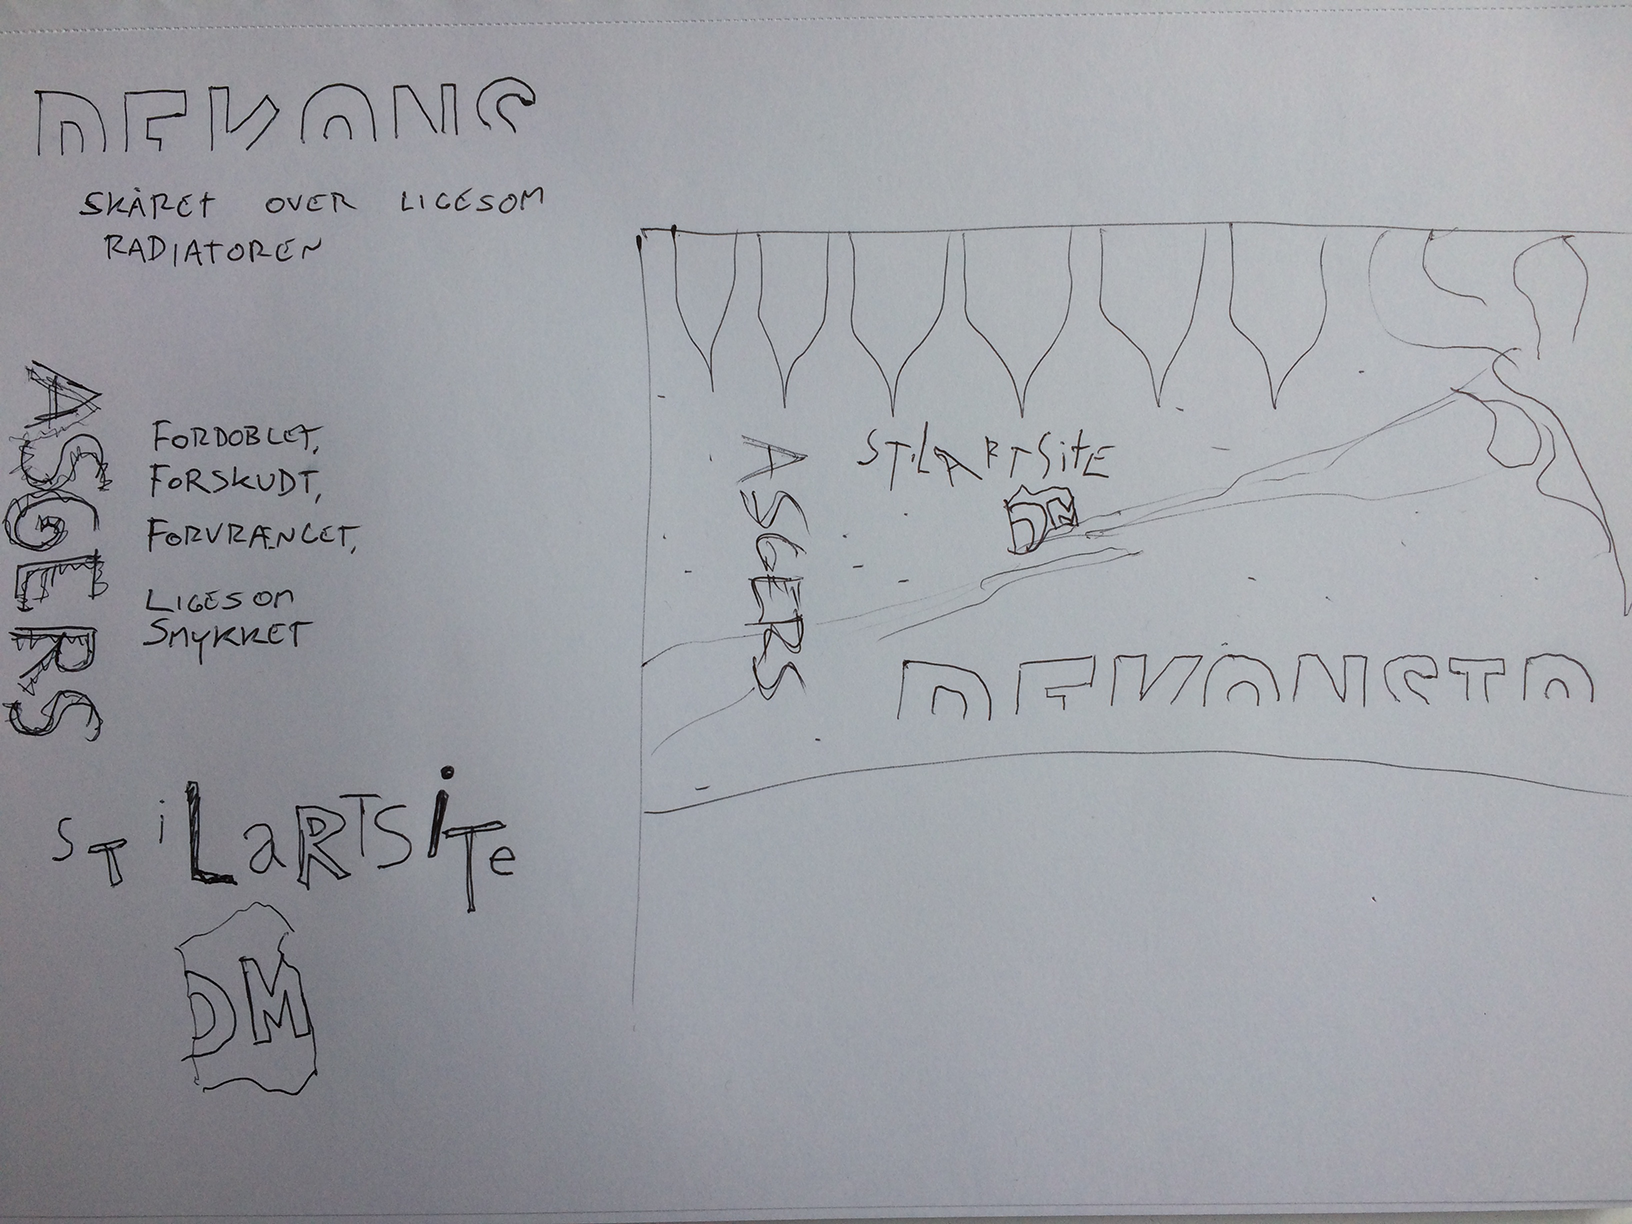 DEKONS
SKÅRET OVER LIGESOM
RADIATOREN
ASGERS
FORDOBLET,
FORSKUDT,
FORVRÆNGET,
LIGESOM
SMYKKET
STiLaRTSiTe
DM
ASGERS
STiLARTSitE
DM
DEKONSTR